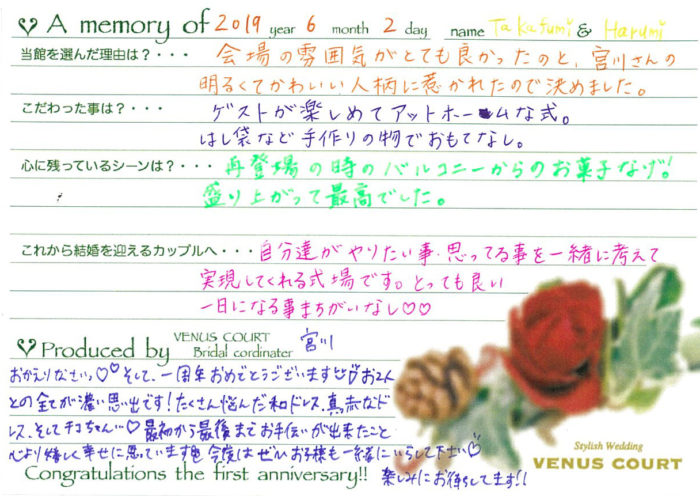 A memory of 2019 year 6 month 2 day name Takafumi & Harumi
当館を選んだ理由は？・・・ 会場の雰囲気がとても良かったのと、宮川さんの
明るくてかわいい人柄に惹かれたので決めました。
こだわった事は？・・・ ゲストが楽しめてアットホームな式。
はし袋など手作りの物でおもてなし。
心に残っているシーンは？・・・ 再登場の時のバルコニーからのお菓子なげ！
盛り上がって最高でした。
これから結婚を迎えるカップルへ・・・ 自分達がやりたい事・思ってる事を一緒に考えて
実現してくれる式場です。とっても良い
一日になる事まちがいなし♡♡
Produced by VENUS COURT Bridal cordinater 宮川
おかえりなさいっ♡♡そして、一周年おめでとうございます お2人
との全てが濃い思い出です！たくさん悩んだ和ドレス、真赤なド
レス、そしてチョコちゃん♡ 最初から最後までお手伝いが出来たこと
心より嬉しく幸せに思っています 今度はぜひお子様も一緒にいらして下さい♡
Congratulations the first anniversary!! 楽しみにお待ちしてます！！
Stylish Wedding
VENUS COURT